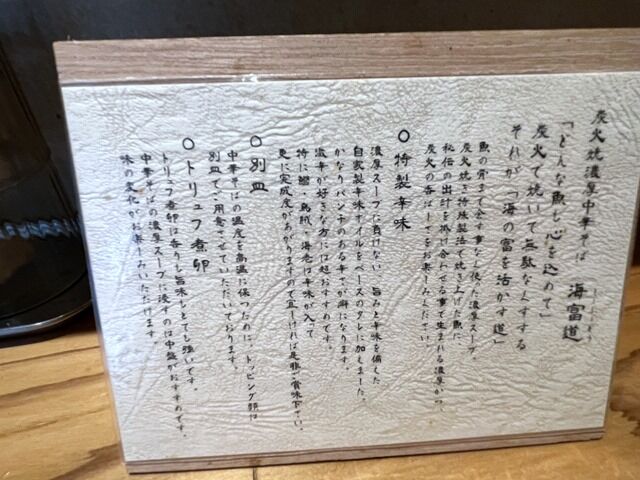 炭火焼濃厚中華そば 海富道
「どんな魚も心を込めて」
炭火で焼いて無駄なくする
それが「海の富を活かす道」
魚の骨まで余す事なく使った濃厚スープ。
炭火焼き特殊製法で焼き上げた魚に、
秘伝の出汁を掛け合わせる事で生まれる濃厚かつ、
炭火の香ばしさをお楽しみください。
○特製辛味
濃厚スープに負けない、旨みと辛味を備えた
自家製辛味オイルをベースのタレに加えました。
かなりパンチのある辛さが癖になります。
激辛が好きな方には超おすすめです。
特に 烏賊、海老は辛味が入って
更に完成度があがりますので宜しければ是非ご賞味下さい。
○別皿
中華そばの温度を高温に保つために、トッピング類は
別皿でご用意させていただいております。
○トリュフ煮卵
トリュフ煮卵は香りも旨味もとても強いです。
中華そばの濃厚スープに浸すのは中盤がおすすめです。
味の変化がお楽しみいただけます。